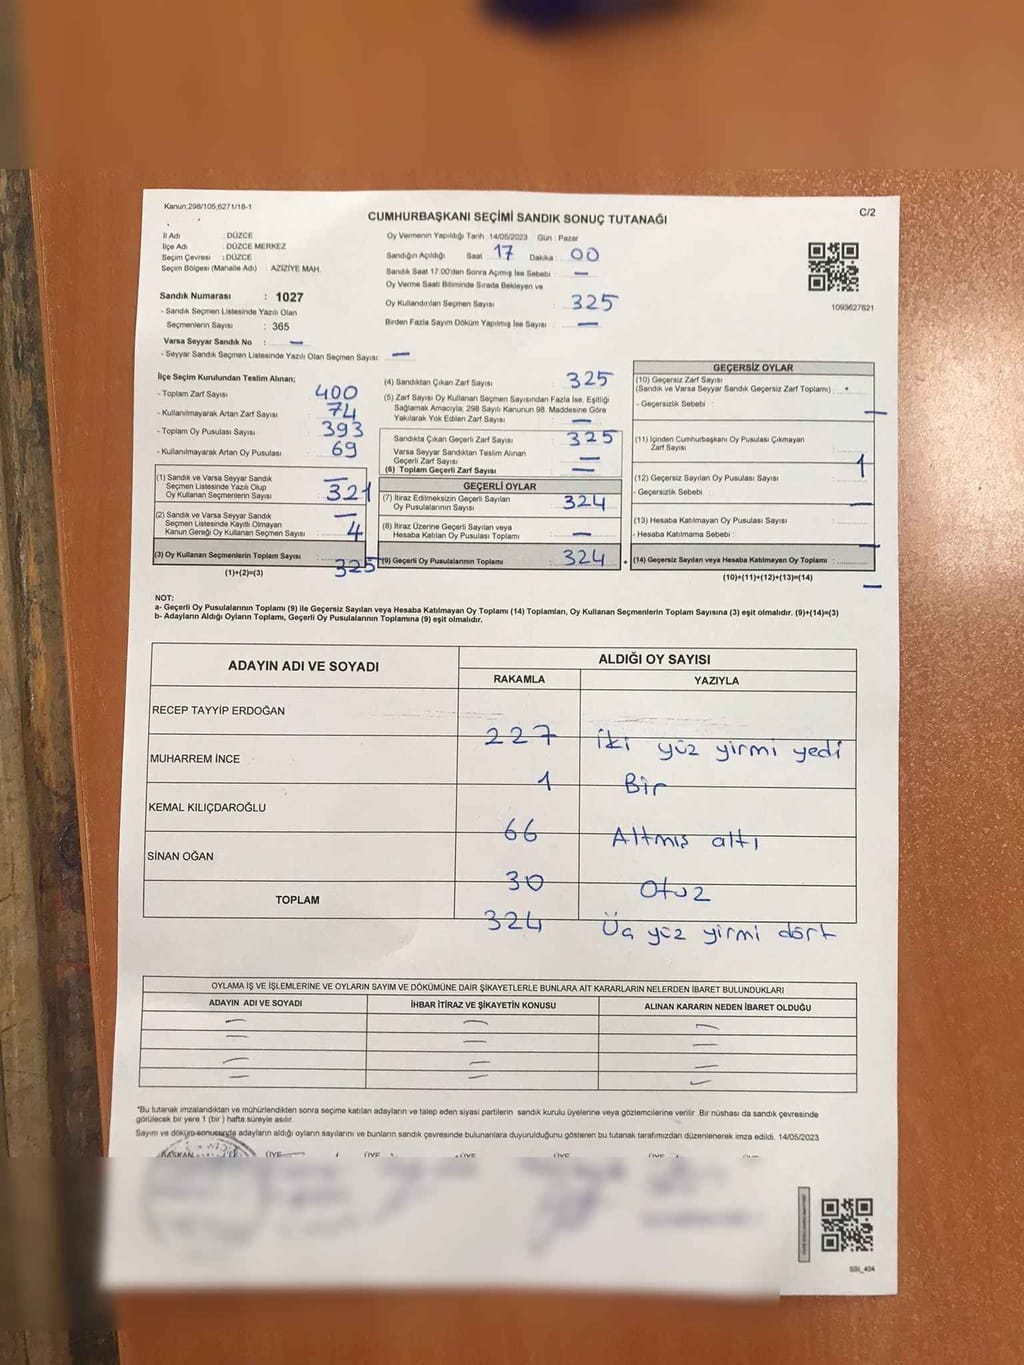 Kanun:298/105,6271/18-1
C/2
CUMHURBAŞKANI SEÇİMİ SANDIK SONUÇ TUTANAĞI
İl Adı : DÜZCE
İlçe Adı : DÜZCE MERKEZ
Seçim Çevresi : DÜZCE
Seçim Bölgesi (Mahalle Adı) : AZİZİYE MAH.
Sandık Numarası : 1027
- Sandık Seçmen Listesinde Yazılı Olan
Seçmenlerin Sayısı : 365
Varsa Seyyar Sandık No : —
- Seyyar Sandık Seçmen Listesinde Yazılı Olan Seçmen Sayısı: —
Oy Vermenin Yapıldığı Tarih :14/05/2023 Gün : Pazar
Sandığın Açıldığı Saat 17 Dakika : 00
Sandık Saat 17.00'den Sonra Açılmış İse Sebebi : —
Oy Verme Saati Bitiminde Sırada Bekleyen ve
Oy Kullandırılan Seçmen Sayısı 325
Birden Fazla Sayım Döküm Yapılmış İse Sayısı : —
1093627621
İlçe Seçim Kurulundan Teslim Alınan;
- Toplam Zarf Sayısı 400
- Kullanılmayarak Artan Zarf Sayısı : 74
- Toplam Oy Pusulası Sayısı : 393
- Kullanılmayarak Artan Oy Pusulası : 69
(1) Sandık ve Varsa Seyyar Sandık
Seçmen Listesinde Yazılı Olup
Oy Kullanan Seçmenlerin Sayısı : 321
(2) Sandık ve Varsa Seyyar Sandık —
Seçmen Listesinde Kayıtlı Olmayan
Kanun Gereği Oy Kullanan Seçmen Sayısı : 4
(3) Oy Kullanan Seçmenlerin Toplam Sayısı : 325
(1)+(2)=(3)
(4) Sandıktan Çıkan Zarf Sayısı : 325
(5) Zarf Sayısı Oy Kullanan Seçmen Sayısından Fazla İse, Eşitliği
Sağlamak Amacıyla; 298 Sayılı Kanunun 98. Maddesine Göre
Yakılarak Yok Edilen Zarf Sayısı : —
Sandıkta Çıkan Geçerli Zarf Sayısı : 325
Varsa Seyyar Sandıktan Teslim Alınan
Geçerli Zarf Sayısı : —
(6) Toplam Geçerli Zarf Sayısı : —
GEÇERLİ OYLAR
(7) İtiraz Edilmeksizin Geçerli Sayılan
Oy Pusulalarının Sayısı : 324
(8) İtiraz Üzerine Geçerli Sayılan veya
Hesaba Katılan Oy Pusulası Toplamı : —
(9) Geçerli Oy Pusulalarının Toplamı : 324
GEÇERSİZ OYLAR
(10) Geçersiz Zarf Sayısı
(Sandık ve Varsa Seyyar Sandık Geçersiz Zarf Toplamı)
- Geçersizlik Sebebi : —
(11) İçinden Cumhurbaşkanı Oy Pusulası Çıkmayan
Zarf Sayısı : 1
(12) Geçersiz Sayılan Oy Pusulası Sayısı :
- Geçersizlik Sebebi : —
(13) Hesaba Katılmayan Oy Pusulası Sayısı :
- Hesaba Katılmama Sebebi : —
(14) Geçersiz Sayılan veya Hesaba Katılmayan Oy Toplamı :
(10)+(11)+(12)+(13)=(14) —
NOT:
a- Geçerli Oy Pusulalarının Toplamı (9) ile Geçersiz Sayılan veya Hesaba Katılmayan Oy Toplamı (14) Toplamları, Oy Kullanan Seçmenlerin Toplam Sayısına (3) eşit olmalıdır. (9)+(14)=(3)
b- Adayların Aldığı Oyların Toplamı, Geçerli Oy Pusulalarının Toplamına (9) eşit olmalıdır.
ADAYIN ADI VE SOYADI ALDIĞI OY SAYISI
RAKAMLA YAZIYLA
RECEP TAYYİP ERDOĞAN
227 iki yüz yirmi yedi
MUHARREM İNCE
1 Bir
KEMAL KILIÇDAROĞLU
66 Altmış altı
SİNAN OĞAN
30 Otuz
TOPLAM
324 Üç yüz yirmi dört
OYLAMA İŞ VE İŞLEMLERİNE VE OYLARIN SAYIM VE DÖKÜMÜNE DAİR ŞİKAYETLERLE BUNLARA AİT KARARLARIN NELERDEN İBARET BULUNDUKLARI
ADAYIN ADI VE SOYADI İHBAR İTİRAZ VE ŞİKAYETİN KONUSU ALINAN KARARIN NEDEN İBARET OLDUĞU
— — —
— — —
— — —
— — —
"Bu tutanak imzalandıktan ve mühürlendikten sonra seçime katılan adayların ve talep eden siyasi partilerin sandık kurulu üyelerine veya gözlemcilerine verilir. Bir nüshası da sandık çevresinde
görülecek bir yere 1 (bir ) hafta süreyle asılır.
Sayım ve döküm sonucunda adayların aldığı oyların sayılarını ve bunların sandık çevresinde bulunanlara duyurulduğunu gösteren bu tutanak tarafımızdan düzenlenerek imza edildi. 14/05/2023
BAŞKAN ÜYE ÜYE ÜYE ÜYE ÜYE